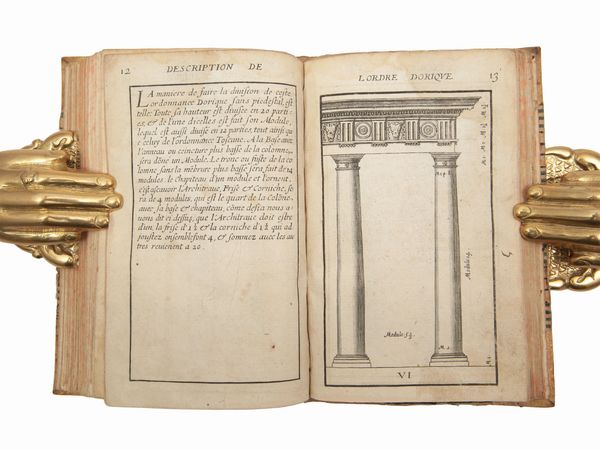 12
DESCRIPTION DE
LA maniere de faire la diuision de ceste
Lordonnance Dorique sans piedestal, est
telle. Toute sa hauteur est diuisee en 20 parti-
es, & de l'une dicelles est fait son Module,
lequel est aussi diuise en 12 parties, tout ainsi q
e celuy de lordonnance Toscane. A la Base auec
l'anneau ou ceinture plus basse de la colomne,
sera dône un Module. Le tronc ou fuste de la co
lomne sans la mêbrure plus basse sera fait de 14
modules. le chapiteau d'un module et l'ornemt.
cest ascauoir l'Architraue, Frise & Corniche, se
ra de 4 modules, qui est le quart de la Colône,
auec sa base & chapiteau, côme desia nous a
uons dit cy dessus, que l'Architraue doit estre
d'un, la frise d'1½ & la corniche d'1½ qui ad
joustez ensemble font 4, & sommez auec les au
tres reuienent a 20.
L'ORDRE DORIQVE.
13
M 1 M 1½ M 1½
Mo 1
Module 14
Module 5½
M. 1
M 1
VI